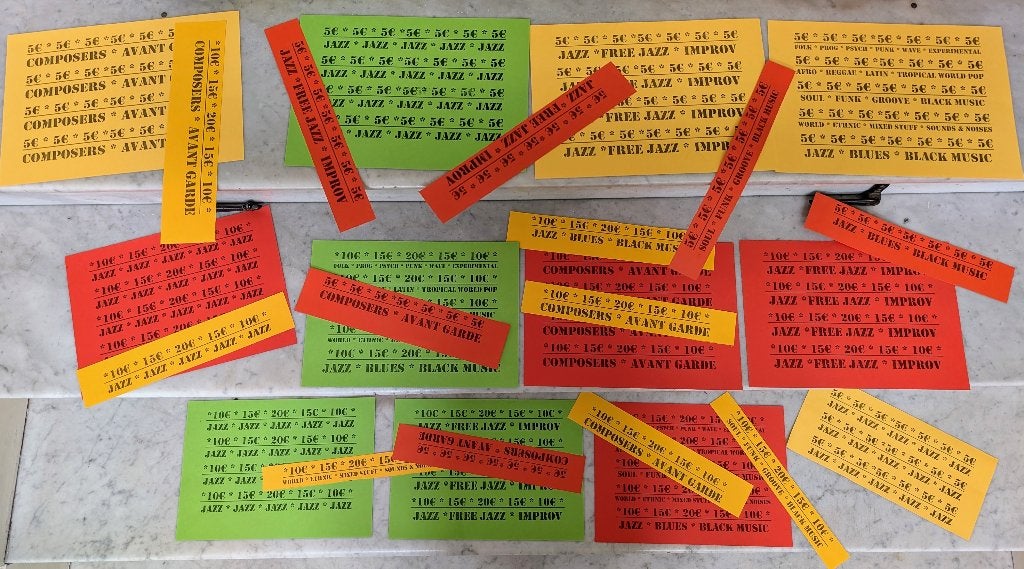 5€ * 5€ * 5€ * 5€ * 5€
COMPOSERS * AVANT
5€ * 5€ * 5€ * 5€ * 5€
COMPOSERS * AVANT
5€ * 5€ * 5€ * 5€ * 5€
COMPOSERS * AVANT
5€ * 5€ * 5€ * 5€ * 5€
COMPOSERS * AVANT
*10€ * 15€ * 20€ * 15€ * 10€
COMPOSERS * AVANT GARDE
5€ * 5€ * 5€ * 5€ * 5€ * 5€
JAZZ * FREE JAZZ * IMPROV
5€ * 5€ * 5€ * 5€ * 5€ * 5€
JAZZ * JAZZ * JAZZ * JAZZ
5€ * 5€ * 5€ * 5€ * 5€ * 5€
JAZZ * JAZZ * JAZZ * JAZZ
5€ * 5€ * 5€ * 5€ * 5€
JAZZ * JAZZ * JAZZ * JAZZ
5€ * 5€ * 5€ * 5€
JAZZ * JAZZ * JAZZ
5€ * 5€ * 5€ * 5€ * 5€ * 5€
JAZZ * FREE JAZZ * IMPROV
5€ * 5€ * 5€ * 5€ * 5€ * 5€
JAZZ *FREE JAZZ * IMPROV
5€ * 5€ * 5€ * 5€
JAZZ * IMPROV
5€ * 5€ * 5€ * 5€
FREE JAZZ * IMPROV
5€ * 5€ * 5€ * 5€ * 5€
JAZZ *FREE JAZZ * IMPROV
5€ * 5€ * 5€ * 5€ * 5€ * 5€
SOUL * FUNK * GROOVE * BLACK MUSIC
5€ * 5€ * 5€ * 5€ * 5€ * 5€
FOLK * PROG * PSYCH * PUNK * WAVE * EXPERIMENTAL
5€ * 5€ * 5€ * 5€ * 5€ * 5€
AFRO * REGGAE * LATIN * TROPICAL WORLD POP
5€ * 5€ * 5€ * 5€ * 5€ * 5€
SOUL * FUNK * GROOVE * BLACK MUSIC
5€ * 5€ * 5€ * 5€ * 5€ * 5€
WORLD * ETHNIC * MIXED STUFF * SOUNDS & NOISES
5€ * 5€ * 5€ * 5€ * 5€ * 5€
JAZZ * BLUES * BLACK MUSIC
*10€ * 15€ * 20€ * 15€ * 10€
JAZZ * JAZZ * JAZZ * JAZZ
*10€ * 15€ * 20€ * 15€ * 10€
JAZZ * JAZZ * JAZZ * JAZZ
*10€ * 15€ * 20€ * 15€ * 10€
JAZZ * JAZZ * JAZZ * JAZZ
*10€ * 15€ * 20€ * 15€ * 10€
JAZZ * JAZZ * JAZZ * JAZZ
*10€ * 15€ * 20€ * 15€ * 10€
FOLK * PROG * PSYCH * PUNK * WAVE * EXPERIMENTAL
15€ * 20€ * 15€ * 10€
LATIN * TROPICAL WORLD POP
5€ * 5€ * 5€ * 5€ * 5€ * 5€
COMPOSERS * AVANT GARDE
*10€
WORLD * ETHNIC *
*10€ * 15€ * 20€ * 15€ * 10€
JAZZ * BLUES * BLACK MUSIC
*10€ * 15€ * 20€ * 15€ * 10€
JAZZ * BLUES * BLACK MUSIC
COMPOSERS * AVANT GARDE
*10€ * 15€ * 20€ * 15€ * 10€
COMPOSERS * AVANT GARDE
COMPOSERS * AVANT GARDE
*10€ * 15€ * 20€ * 15€ * 10€
COMPOSERS * AVANT GARDE
*10€ * 15€ * 20€ * 15€
JAZZ *FREE JAZZ * IMPROV
*10€ * 15€ * 20€ * 15€ * 10€
JAZZ *FREE JAZZ * IMPROV
*10€ * 15€ * 20€ * 15€ * 10€
JAZZ *FREE JAZZ * IMPROV
*10€ * 15€ * 20€ * 15€ * 10€
JAZZ *FREE JAZZ * IMPROV
5€ * 5€ * 5€ * 5€ * 5€ * 5€
JAZZ * BLUES * BLACK MUSIC
*10€ * 15€ * 20€ * 15€ * 10€
JAZZ * JAZZ * JAZZ * JAZZ
*10€ * 15€ * 20€ * 15€ * 10€
JAZZ * JAZZ * JAZZ * JAZZ
*10€ * 15€ * 20€ * 15€ * 10€
WORLD * ETHNIC * MIXED STUFF * SOUNDS &
*10€ * 15€ * 20€ * 15€ * 10€
JAZZ * JAZZ * JAZZ * JAZZ
*10€ * 15€ * 20€ * 15€ * 10€
JAZZ *FREE JAZZ * IMPROV
5€ * 5€ * 5€ * 5€ * 5€ * 5€
COMPOSERS * AVANT GARDE
*10€ * 15€ * 20€ * 15€ * 10€
JAZZ *FREE JAZZ * IMPROV
*10€ * 15€ * 20€ * 15€ * 10€
COMPOSERS * AVANT GARDE
15€ * 20€ * 15€
PSYCH * PUNK * WAVE
TROPICAL WORLD
WORLD * ETHNIC * MIXED STUFF
*10€ * 15€ * 20€ * 15€ * 10€
JAZZ * BLUES * BLACK MUSIC
*10€ * 15€ * 20€ * 15€ * 10€
SOUL * FUNK * GROOVE * BLACK MUSIC
5€ * 5€ * 5€ * 5€ * 5€ * 5€
JAZZ * JAZZ * JAZZ * JAZZ
5€ * 5€ * 5€ * 5€ * 5€ * 5€
JAZZ * JAZZ * JAZZ * JAZZ
5€ * 5€ * 5€ * 5€ * 5€ * 5€
JAZZ * JAZZ * JAZZ * JAZZ